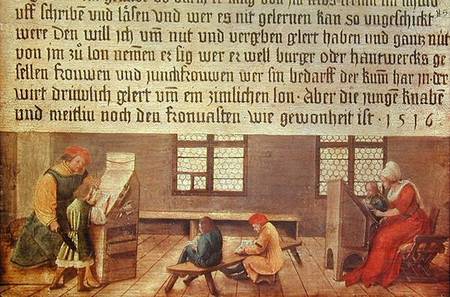 uff schriben und läsen und wer es nit gelernen kan so ungeschickt
were den will ich umm nüt und vergeben gelert haben und gantz nüt
von jm zů lon nemen er sig wer er well burger oder hantwercks ge
sellen frouwen und junckfrouwen wer sin bedarff der kum har jn · der
wirt drüwlich gelert um ein zimlichen lon · Aber die junge knabē
und meitlin noch den fronuasten wie gewonheit ist · 1516 ·